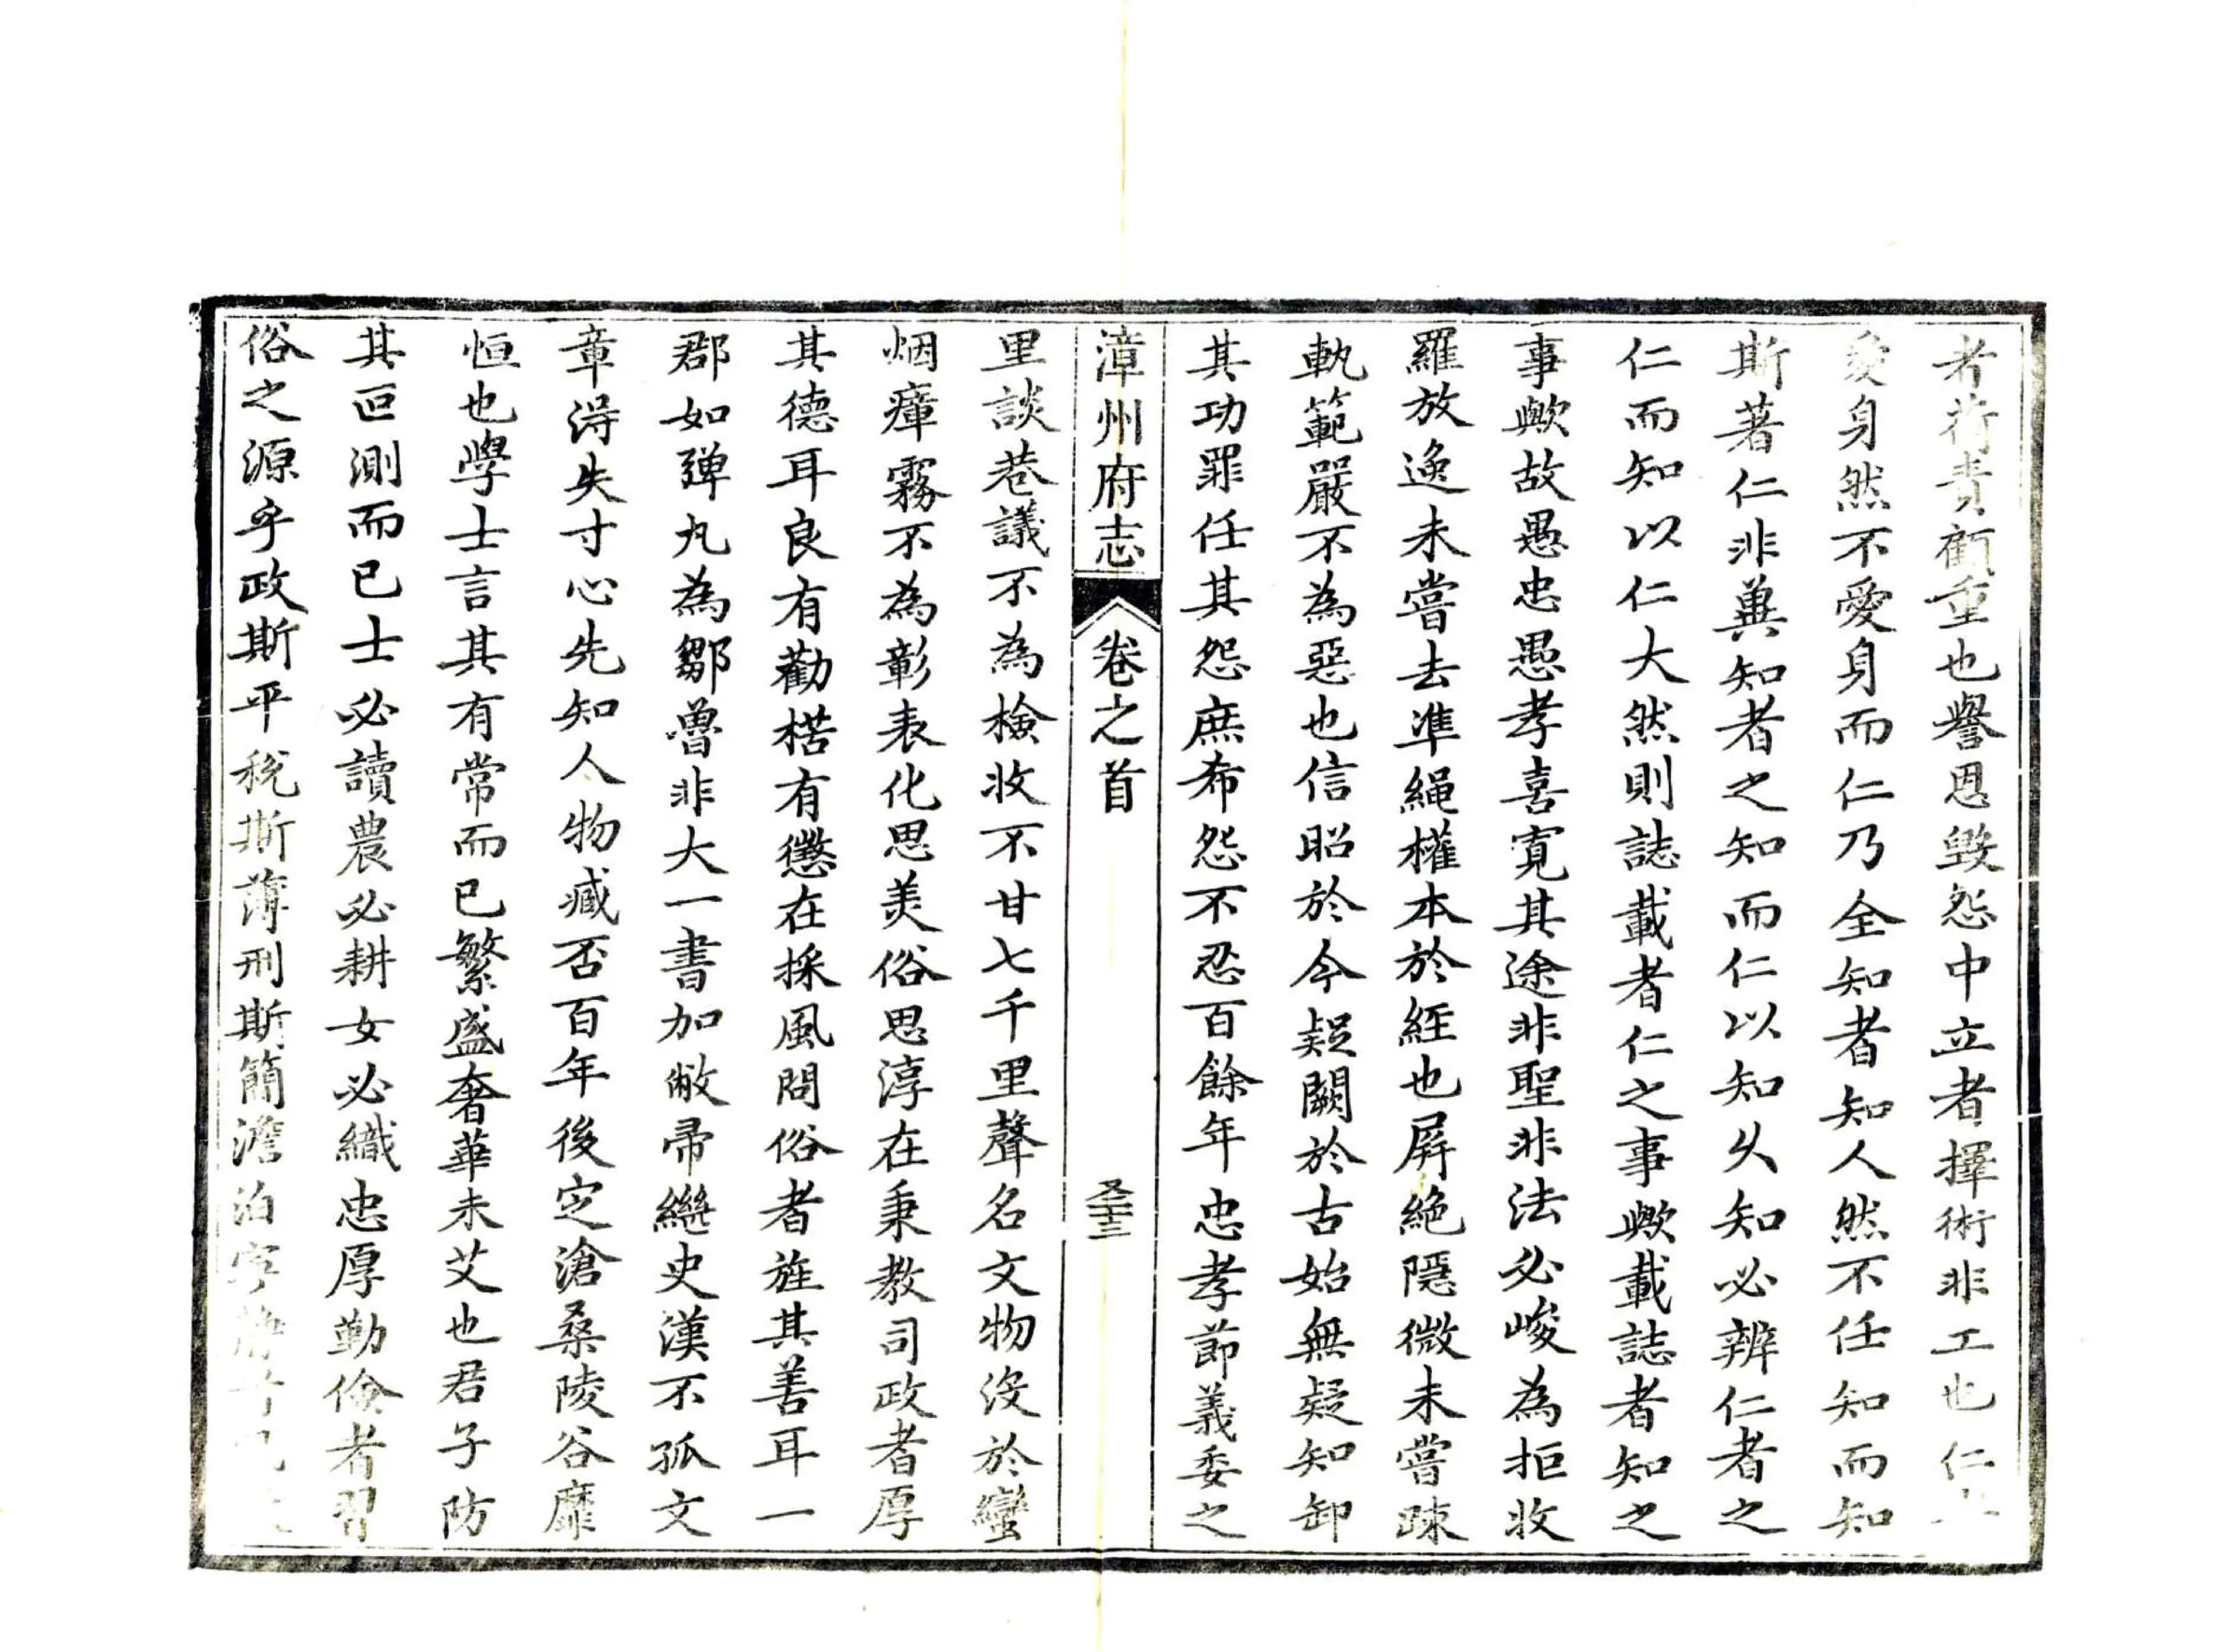 者荷責顧重也譽恩毀怨中立者擇術非工也仁
愛身然不愛身而仁乃全知者知人然不任知而知
斯著仁非兼知者之知而仁以知久知必辨仁者之
仁而知以仁大然則誌載者仁之事歟載誌者知之
事歟故愚忠愚孝喜寬其途非聖非法必峻為拒收
羅放逸未嘗去準繩權本於經也屏絶隱微未嘗疎
軌範嚴不為惡也信昭於今疑闕於古始無疑知卸
其功罪任其怨庶希怨不忍百餘年忠孝節義委之
漳州府志 卷之首
里談巷議不為檢收不甘七千里聲名文物沒於蠻
烟瘴霧不為彰表化思美俗思淳在秉教司政者厚
其德耳良有勸楛有懲在採風問俗者旌其善耳一
郡如彈丸為鄒魯非大一書加敝帚繼史漢不孤文
章得失寸心先知人物臧否百年後定滄桑陵谷靡
恒也學士言其有常而已繁盛奢華未艾也君子防
其叵測而已士必讀農必耕女必織忠厚勤儉者習
俗之源乎政斯平稅斯薄刑斯簡澹泊寧靜者